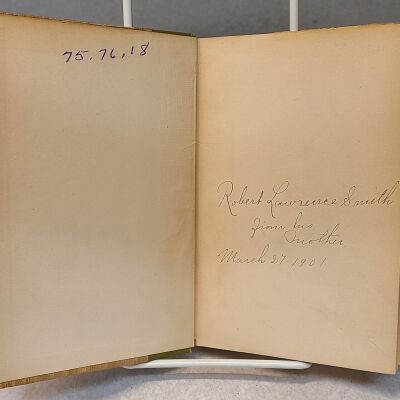 75.76.18
Robert Lawrence Smith
from his
mother
March 27-1901